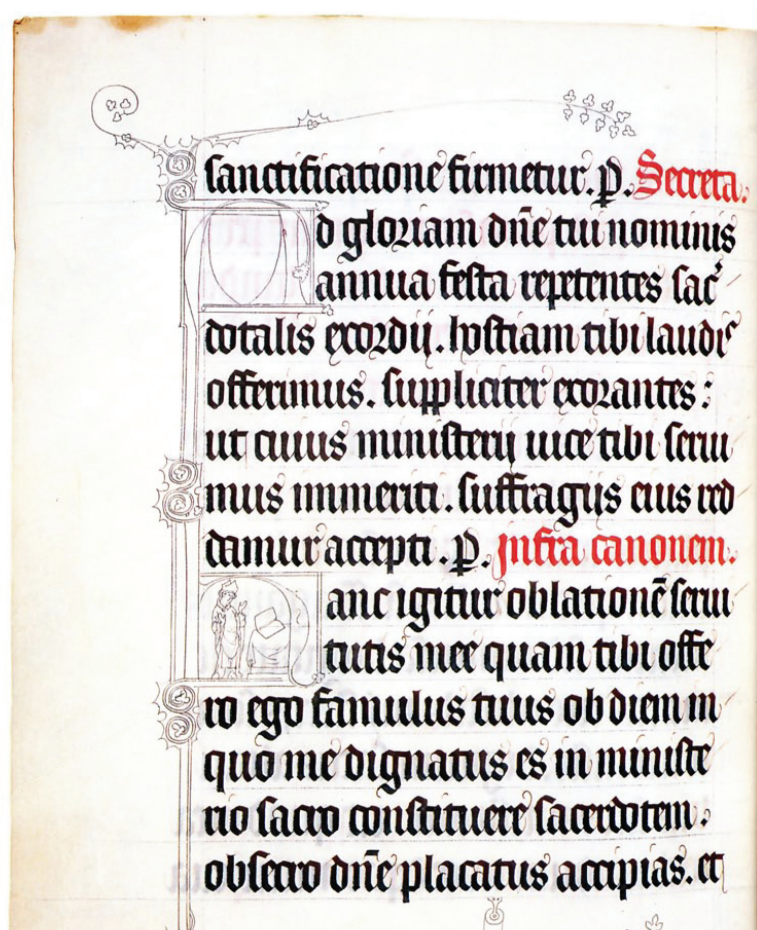 sanctificatione firmetur. p. Secreta.
d gloriam dn̄e tui nominis
annua festa repetentes sac̉
dotalis exordij. hostiam tibi laudis
offerimus. suppliciter exorantes:
ut cuius ministerij uice tibi serui
mus immeriti. suffragijs eius red
damur accepti. p. Infra canonem.
anc igitur oblationē serui
tutis mee quam tibi offe
ro ego famulus tuus ob diem in
quo me dignatus es in ministe
rio sacro constituere sacerdotem:
obsecro dn̄e placatus accipias. et